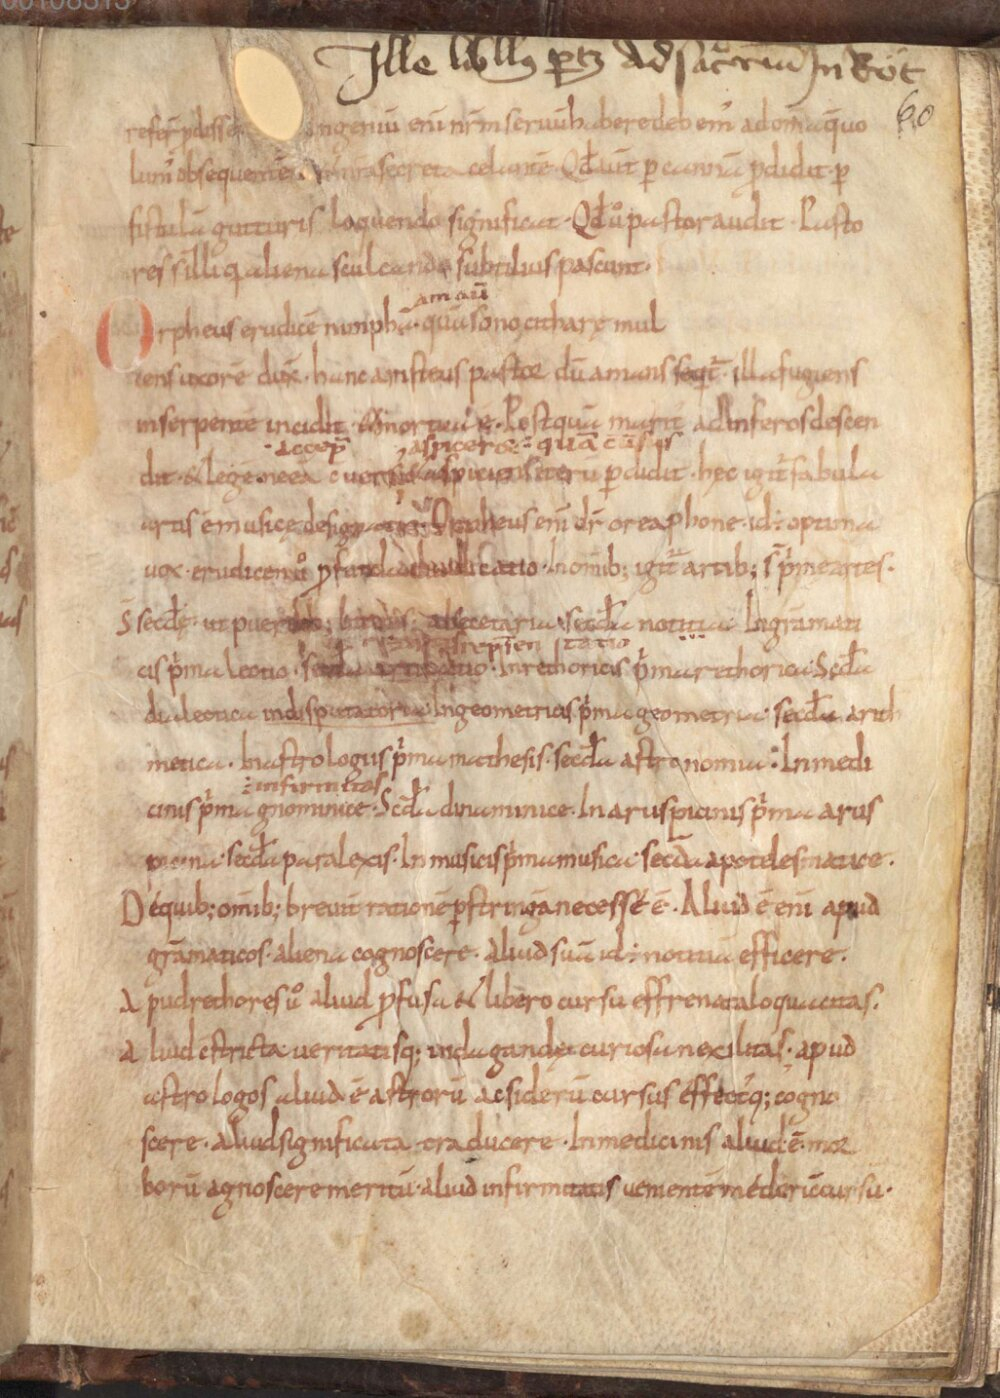 00108313
Ille libell9 ꝑtz Ad sac̄rariū In Röt
60
refer ꝓdisse ingeniū eni nr̄m seruūh abere debem̄ ad om̄a quo
lum obsequentem secreta celante. Qd̄ uit ꝑ canna ꝓdidit. ꝑ
fistulā gutturis loquendo significat. Qd̄ u̇ pastor audit. Pasto
res s̄ illi q aliena sculcando subtilius pascunt.
amauı̄
Orpheus erudicē nimphā. quā sono citharę mul
cens uxorē dux. hanc aristeus pastor dū amans seqr̄t. illa fugiens
in serpente incidit. & mortua ē. Postquā mariti ad inferos descen
accep̄ aspiceret quā cūsis
dit. & legē neea c uon aspiciens iterū ꝑdidit. hęc igit̄ fabula
artis ē musicę designatrix. Orpheus eni dr̄ oreaphone. id ÷ optima
uox. erudicen u̇ ꝓfunda diiudicatio. In omib; igit̄ artib; s̄ p̄me artes.
S secdę. ut puerilib; litteris; abecetaria. secd̄a notitia. In gramati
cis p̄ma lectio. secd̄a articulatio. In rethoricis p̄ma rethorica. Secd̄a
dialectica indisputatoria. In geometricis p̄ma geometria. secd̄a arith
metica. In astrologiis p̄ma mathesis. secd̄a astronomia. In medi
÷ infirmitas
cinis p̄ma gnominice. Scd̄a dinaminice. In aruspicinis p̄ma arus
picina. secd̄a paralexis. In musicis p̄ma musica. secd̄a apotelesmatice.
De quib; omib; breuit ratione ꝑstringā necesse ē. Aliud ē eni apud
grāmaticos. aliena cognoscere. aliud suā id ÷ notitiā efficere.
Apud rethores u̇ aliud ꝓfusa & libero cursu effrenata loquacitas.
aliud c̄stricta ueritatisq; indagandę curiosa nexilitas. apud
astrologos aliud ē astrorū ac siderū cursus effectq; cogno
scere. aliud significata traducere. In medicinis aliud ē mor
borū agnoscere meritū. aliud infirmitatis uementē mederi cursū.